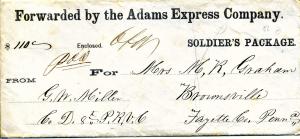 Forwarded by the Adams Express Company.
$ 110 00 Enclosed. SOLDIER'S PACKAGE.
FROM For Mrs M, R, Graham
G. W. Miller Brownsville
C. D. 8th P. R. V. C Fayette Co, Penn